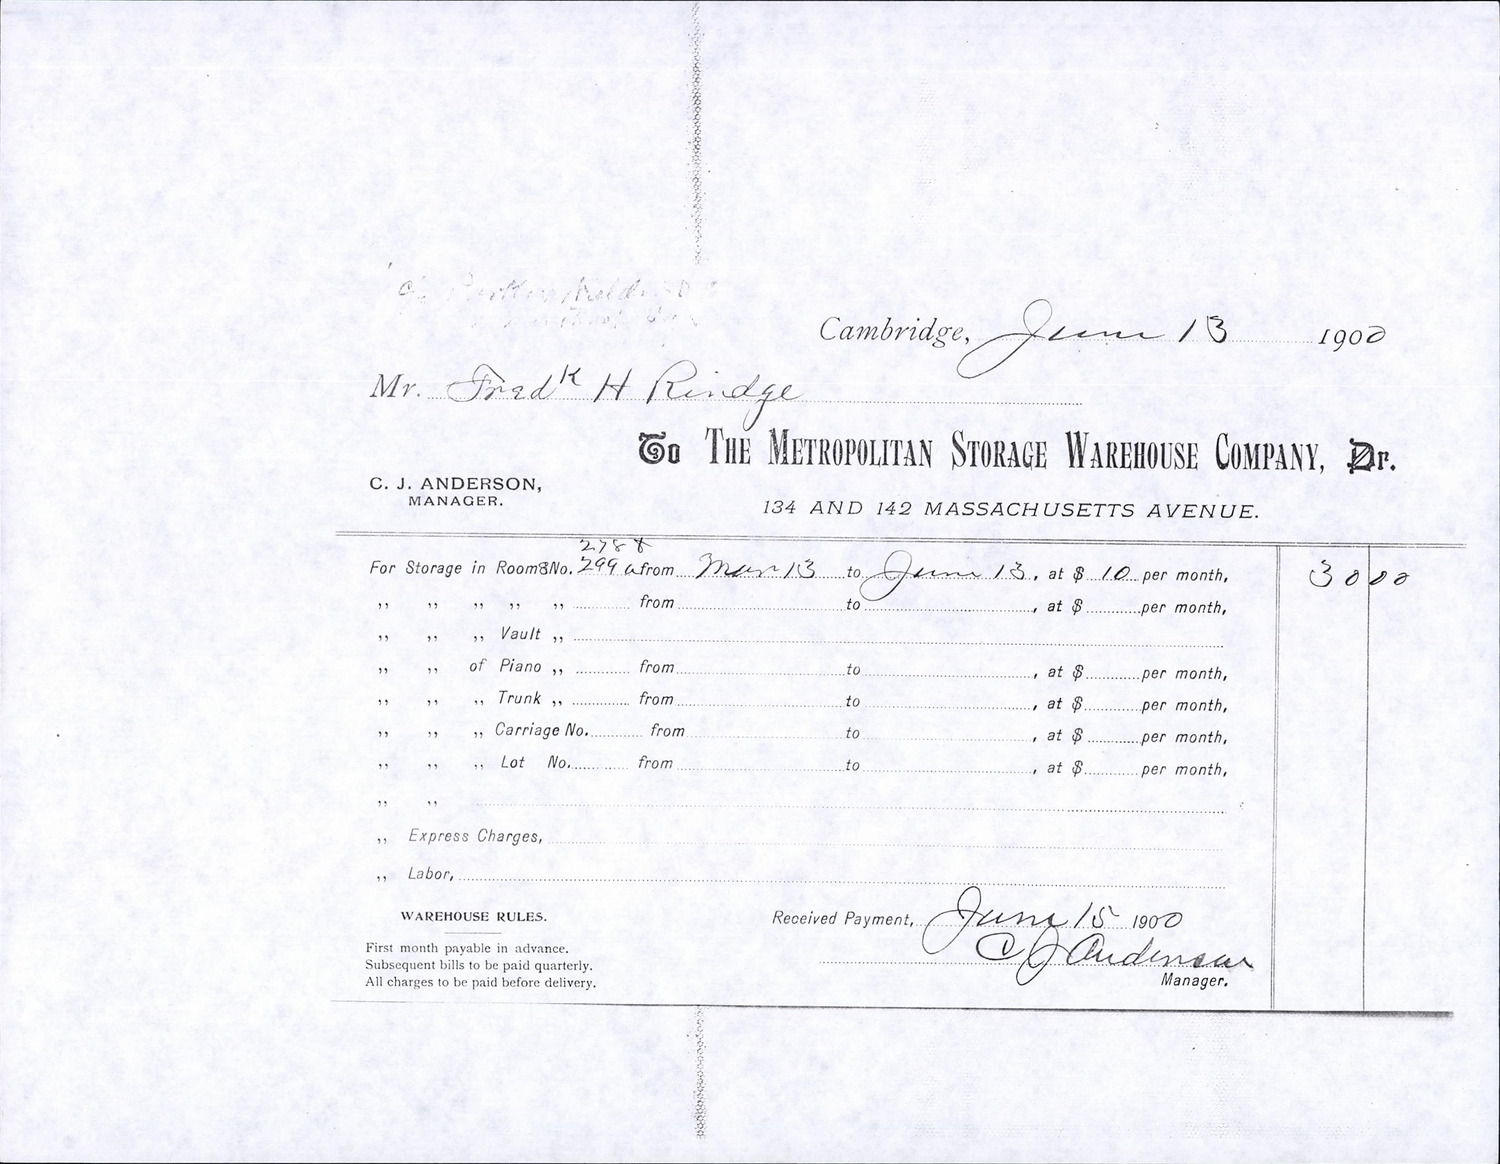 Cambridge, June 13 1900
Mr. Fredk H Rindge
To The Metropolitan Storage Warehouse Company, Dr.
C. J. ANDERSON,
MANAGER.
134 AND 142 MASSACHUSETTS AVENUE.
For Storage in Rooms No. 299 from Mar 13 to June 13, at $ 10 per month, 30 00
,, ,, ,, ,, ,, from to , at $ per month,
,, ,, ,, Vault ,,
,, ,, of Piano ,, from to , at $ per month,
,, ,, ,, Trunk ,, from to , at $ per month,
,, ,, ,, Carriage No. from to , at $ per month,
,, ,, ,, Lot No. from to , at $ per month,
,, ,,
,, Express Charges,
,, Labor,
WAREHOUSE RULES.
First month payable in advance.
Subsequent bills to be paid quarterly.
All charges to be paid before delivery.
Received Payment, June 15 1900
C J Anderson
Manager.